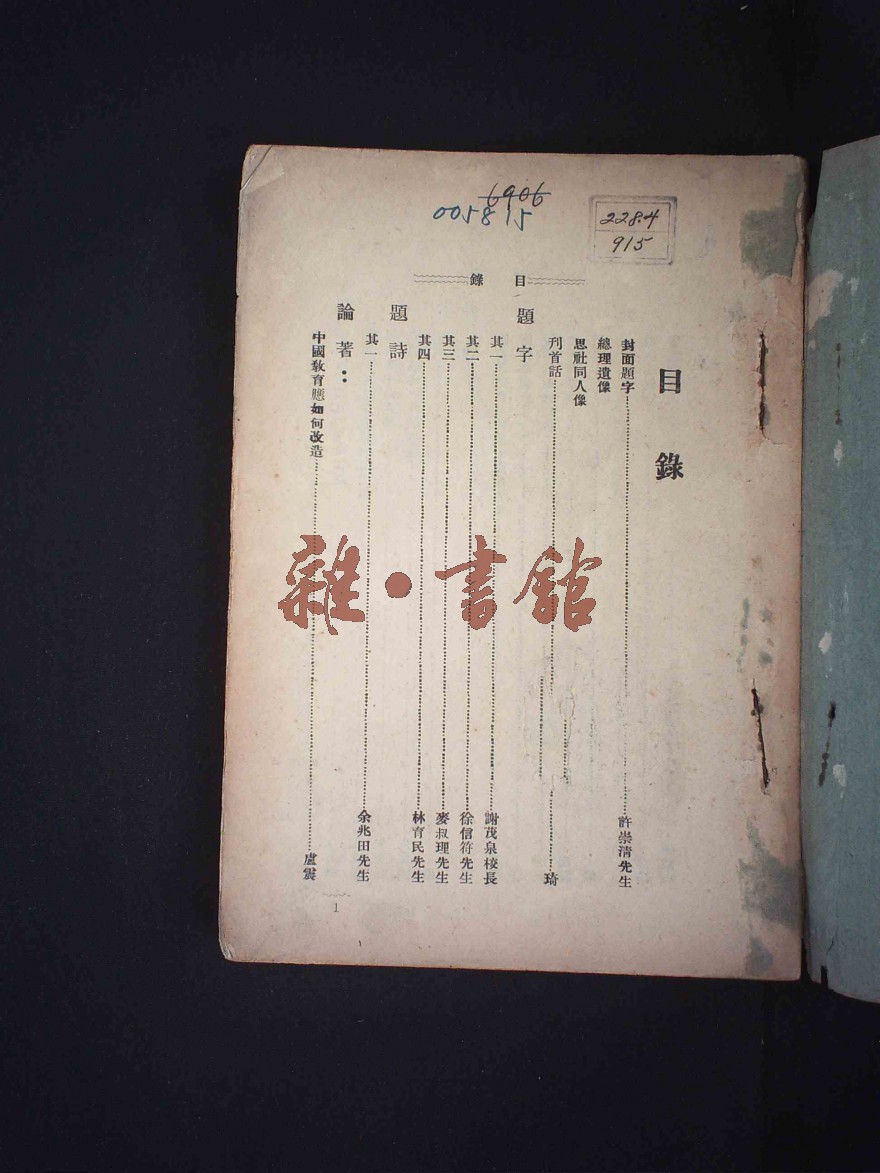 6906
005815
228.4
915
目錄
目錄
封面題字……許崇清先生
總理遺像
思社同人像
刊首話……琦
題字
其一……謝茂泉校長
其二……徐信符先生
其三……麥叔理先生
其四……林育民先生
題詩
其一……余兆田先生
論著：
中國教育應如何改造……盧震
1
雜·書館